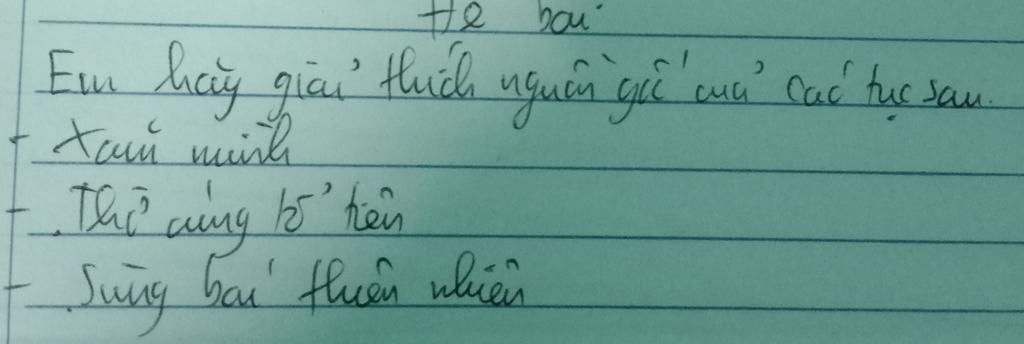 Đề bài
Em hãy giải thích nguồn gốc của các tục sau.
- Xăm mình
- Thờ cúng tổ tiên
- Sùng bái thiên nhiên